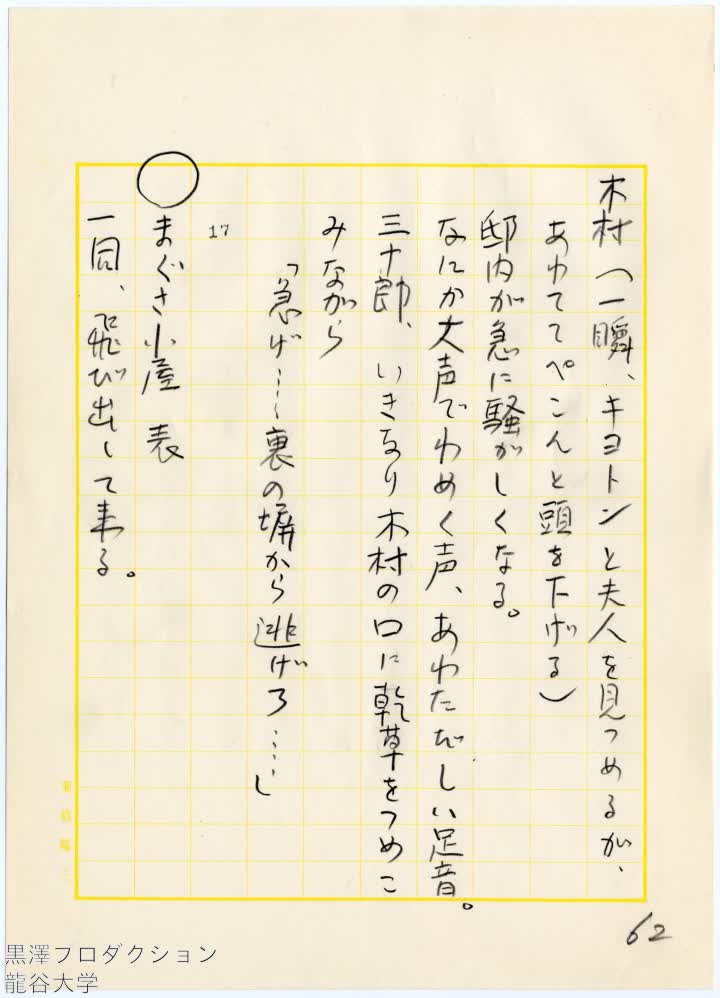 木村（一瞬、キョトンと夫人を見つめるが、
あわててぺこんと頭を下げる）
邸内が急に騒がしくなる。
なにか大声でわめく声、あわただしい足音。
三十郎、いきなり木村の口に乾草をつめこ
みながら
「急げ……裏の塀から逃げろ……」
17
◯まぐさ小屋 表
一同、飛び出して来る。
62
黒澤プロダクション
龍谷大学